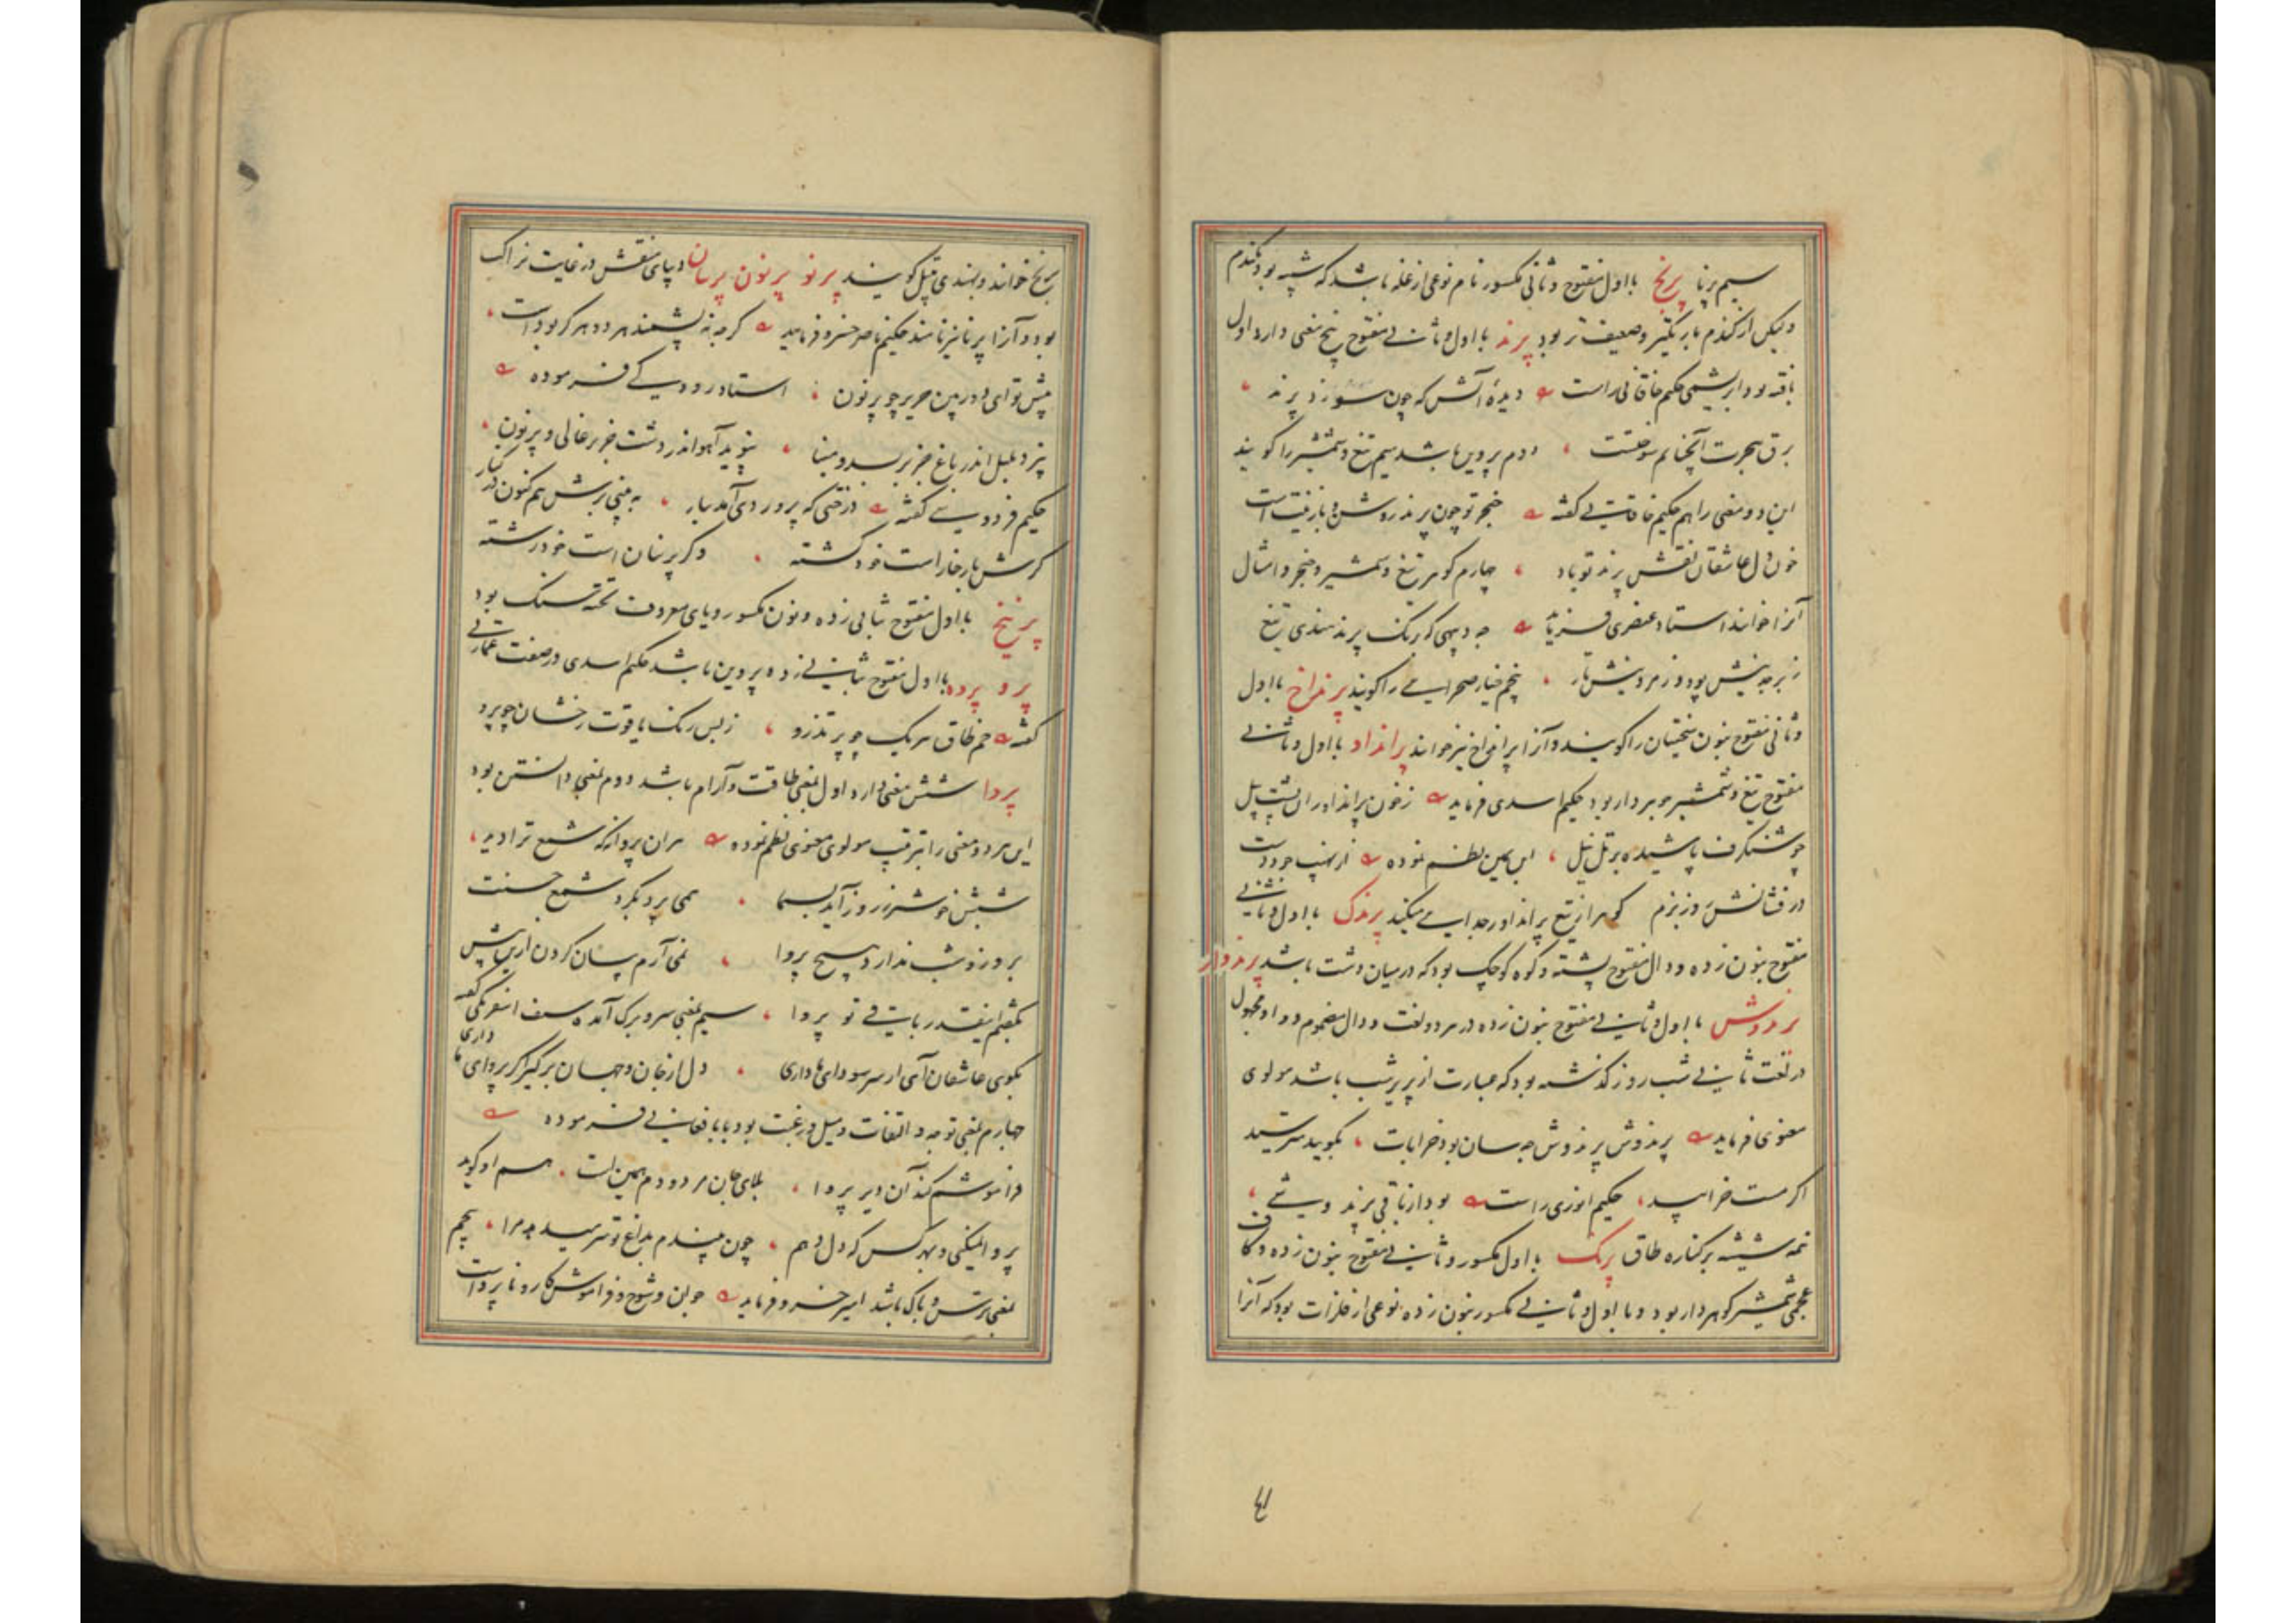 سیم برنا پرنج با اول مفتوح و ثانی مکسور نام نوعی از غله باشد که شبیه بود بکندم
ولیکن از کندم باریکتر و ضعیف تر بود پرند با اول و ثانی مفتوح پنج معنی دارد اول
بافته بود ابریشمی حکیم خاقانی راست دیدهٔ آتش که چون سوزد پرند
برق هجرت آنچنانم سوختست دوم پروین باشد سیم تیغ و شمشیر را کویند
این دو معنی را هم حکیم خاقانی کفته خنجر تو چون پرند روشن و بازینت است
خون دل عاشقان نقش پرند تو باد چهارم کوهر تیغ و شمشیر و خنجر و امثال
آنرا خوانند استاد عنصری فرماید چه دیبهی که برنک پرند هندی تیغ
زبرجدینش پود و زمردینش تار پنجم خیار صحرایی را کویند پرنداخ با اول
و ثانی مفتوح بنون سختیان را کویند و آنرا پرانداخ نیز خوانند پرانداد با اول و ثانی
مفتوح تیغ و شمشیر جوهردار بود حکیم اسدی فرماید ز خون پرانداوران پشت پیل
چو شنکرف پاشیده بر تل نیل ابن یمین نظم نموده از نهیب جود دست
در فشانش روز بزم کوهر از تیغ پرانداور جدایی میکند پرندک با اول و ثانی
مفتوح بنون زده و دال مفتوح پشته و کوه کوچک بود که در میان دشت باشد پرندوار
پرندوش با اول و ثانی مفتوح بنون زده در هر دو لغت و دال مضموم و واو مجهول
در لغت ثانی شب روز کذشته بود که عبارت از پریر شب باشد مولوی
معنوی فرماید پرندوش پرندوش چه سان بود خرابات بکویید مترسید
اکر مست خرابید حکیم انوری راست بود از باقی پرند دوشی
نیمه شیشه بر کناره طاق پرنک با اول مکسور و ثانی مفتوح بنون زده و کاف
عجمی شمشیر کوهردار بود و با اول و ثانی مکسور بنون زده نوعی از فلزات بود که آنرا
برنج خوانند و بهندی پتل کویند پرنو پرنون پرنیان دیبای منقش در غایت نزاکت
بود و آنرا پرنا نیز نامند حکیم ناصر خسرو فرماید کرچه نه پشمند هر دو هرکز بوده است
پیش تو ای دوربین حریر چو پرنون استاد رودکی فرموده
نپرد بلبل اندر باغ جز بر بسد و مینا نپوید آهو اندر دشت جز بر غالی و پرنون
حکیم فردوسی کفته درختی که پروردی آمد ببار به بینی برش هم کنون در کنار
کرش بار خار است خود کشته وکر پرنیان است خود رشته
پرنیخ با اول مفتوح بثانی زده و نون مکسور و یای معروف تخته سنک بود
پرو پروه با اول مفتوح بثانی زده پروین باشد حکیم اسدی در صفت عمارتی
کفته خم طاق هر یک چو پر تذرو ز بس رنک یاقوت رخشان چو پرو
پروا شش معنی دارد اول بمعنی طاقت و آرام باشد دوم بمعنی دانستن بود
این هر دو معنی را بترتیب مولوی معنوی نظم نموده هر آن پروانه که شمع ترا دید
شبش خوشتر ز روز آید بسیما همی پرد بکرد شمع حسنت
بروز و شب ندارد هیچ پروا نمی آرم بیان کردن ازین بیش
بکفتم اینقدر باقی تو پروا سیم بمعنی سر و برک آمده سیف اسفرنکی کفته
بکوی عاشقان آی ار سر سودای ما داری دل از جان و جهان برکیر اکر پروای ما داری
چهارم بمعنی توجه و التفات و میل و رغبت بود بابا فغانی فرموده
فراموشم کند آن دیر پروا بلای جان مردودم همین است هم او کوید
پروا نمیکنی و بهر کس که دل دهم چون بیندم بداغ تو ترسد مرا پنجم
بمعنی ترس و باک باشد امیر خسرو فرماید جوان و شوخ و فراموش کار و ناپرواست